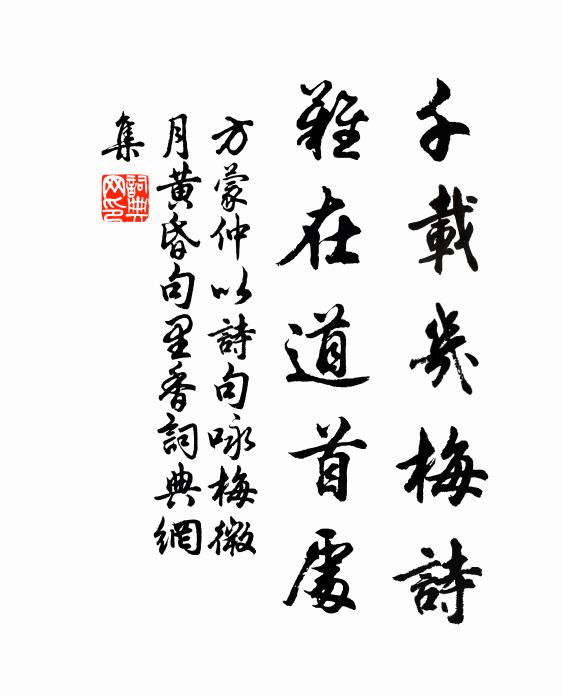 千載幾梅詩
難在道首處
方蒙仲以詩句咏梅微
月黃昏句里香詞典網
集
詞典網印